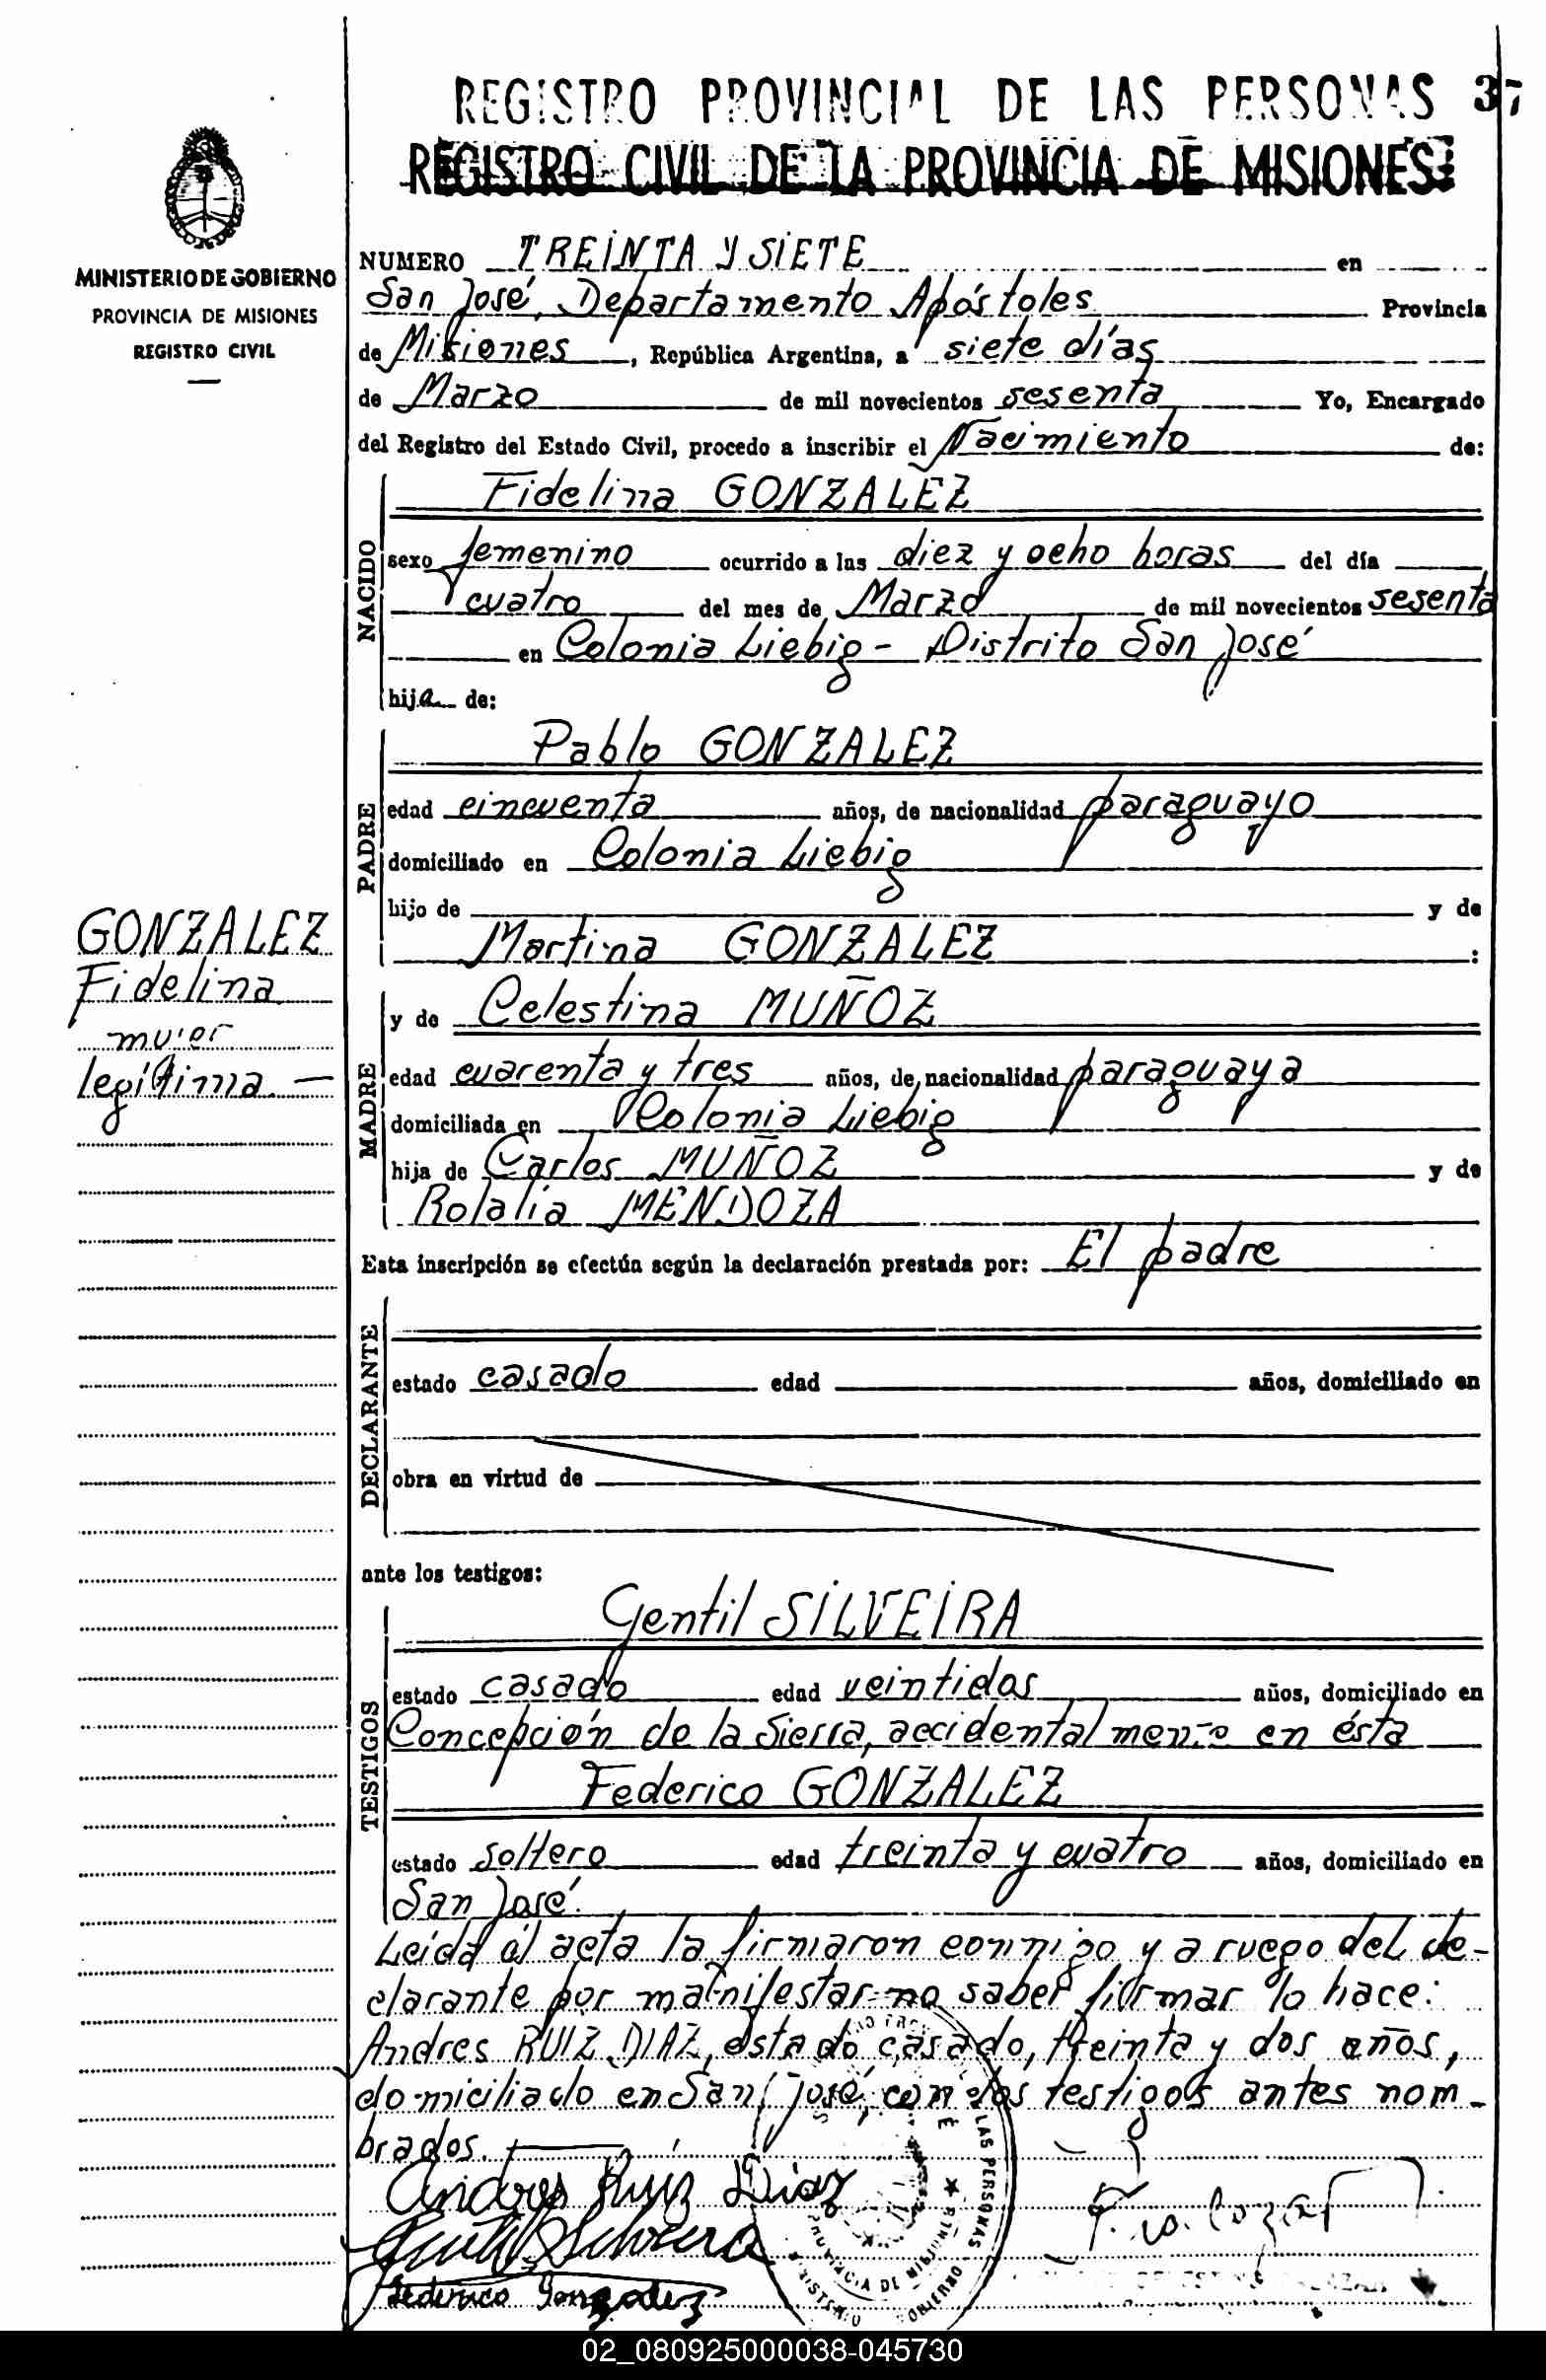 REGISTRO PROVINCIAL DE LAS PERSONAS 37
REGISTRO CIVIL DE LA PROVINCIA DE MISIONES
MINISTERIO DE GOBIERNO
PROVINCIA DE MISIONES
REGISTRO CIVIL
NUMERO TREINTA Y SIETE en
San José, Departamento Apóstoles Provincia
de Misiones, República Argentina, a siete días
de Marzo de mil novecientos sesenta Yo, Encargado
del Registro del Estado Civil, procedo a inscribir el Nacimiento de:
NACIDO
Fidelina GONZALEZ
sexo femenino ocurrido a las diez y ocho horas del día
cuatro del mes de Marzo de mil novecientos sesenta
en Colonia Liebig - Distrito San José
hija de:
PADRE
Pablo GONZALEZ
edad cincuenta años, de nacionalidad paraguayo
domiciliado en Colonia Liebig
hijo de y de
Martina GONZALEZ :
GONZALEZ
Fidelina
mujer
legítima. —
MADRE
y de Celestina MUÑOZ
edad cuarenta y tres años, de nacionalidad paraguaya
domiciliada en Colonia Liebig
hija de Carlos MUÑOZ y de
Rolalia MENDOZA
Esta inscripción se efectúa según la declaración prestada por: El padre
DECLARANTE
estado casado edad años, domiciliado en
obra en virtud de
ante los testigos:
TESTIGOS
Gentil SILVEIRA
estado casado edad veintidos años, domiciliado en
Concepción de la Sierra, accidentalmente en ésta
Federico GONZALEZ
estado soltero edad treinta y cuatro años, domiciliado en
San José.
Leída el acta la firmaron conmigo y a ruego del de-
clarante por manifestar no saber firmar lo hace:
Andres RUIZ DIAZ, estado casado, treinta y dos años,
domiciliado en San José, con los testigos antes nom-
brados.
Andres Ruiz Diaz
Gentil Silveira
Federico Gonzalez
LAS PERSONAS
PROVINCIA DE MISIONES
MINISTERIO GOBIERNO
02_080925000038-045730